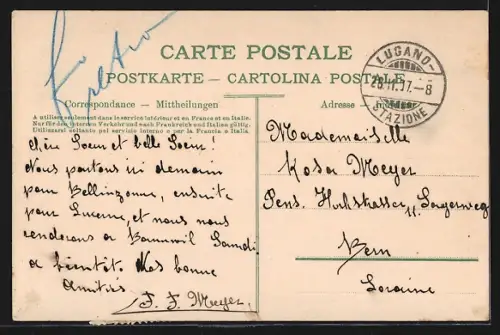 Fco retro
CARTE POSTALE
POSTKARTE - CARTOLINA POSTALE
LUGANO-
26.11.07.-8
STAZIONE
Correspondance - Mittheilungen
Adresse
A utiliser seulement dans le service intérieur et en France et en Italie.
Nur für den internen Verkehr und nach Frankreich und Italien gültig.
Utilizzarsi soltanto pel servizio interno e per la Francia e Italia.
Chère Soeur et belle Soeur!
Nous partons ici demain
pour Bellinzonne, ensuite
pour Lucerne, et nous nous
renderons a Samedi
a bientôt. bonne
Amitiés
J. F. Meyer
Mademoiselle
Rosa Meyer
Pens.
Bern
Loraine